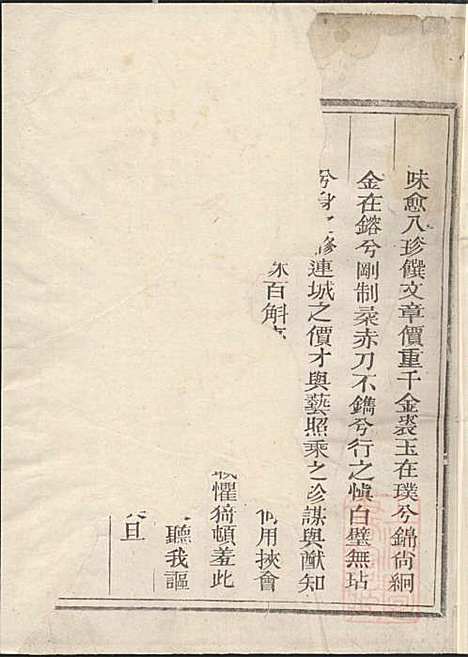 味愈八珍饌文章價重千金裘玉在璞兮錦尚絅
金在鎔兮剛制柔赤刀不鐫兮行之愼白璧無玷
兮身修連城之價才與藝照乘之珍謀與猷知
百斛
用挾會
懼猗頓羞此
聽我謳